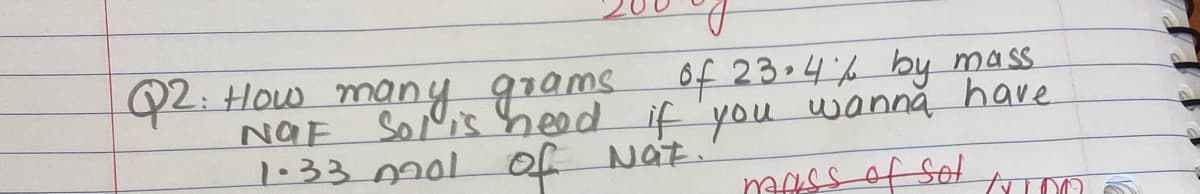 200 g
Q2: How many grams of 23.4% by mass
NaF Solⁿ is need if you wanna have
1.33 mol of Nat.
mass of sol x100